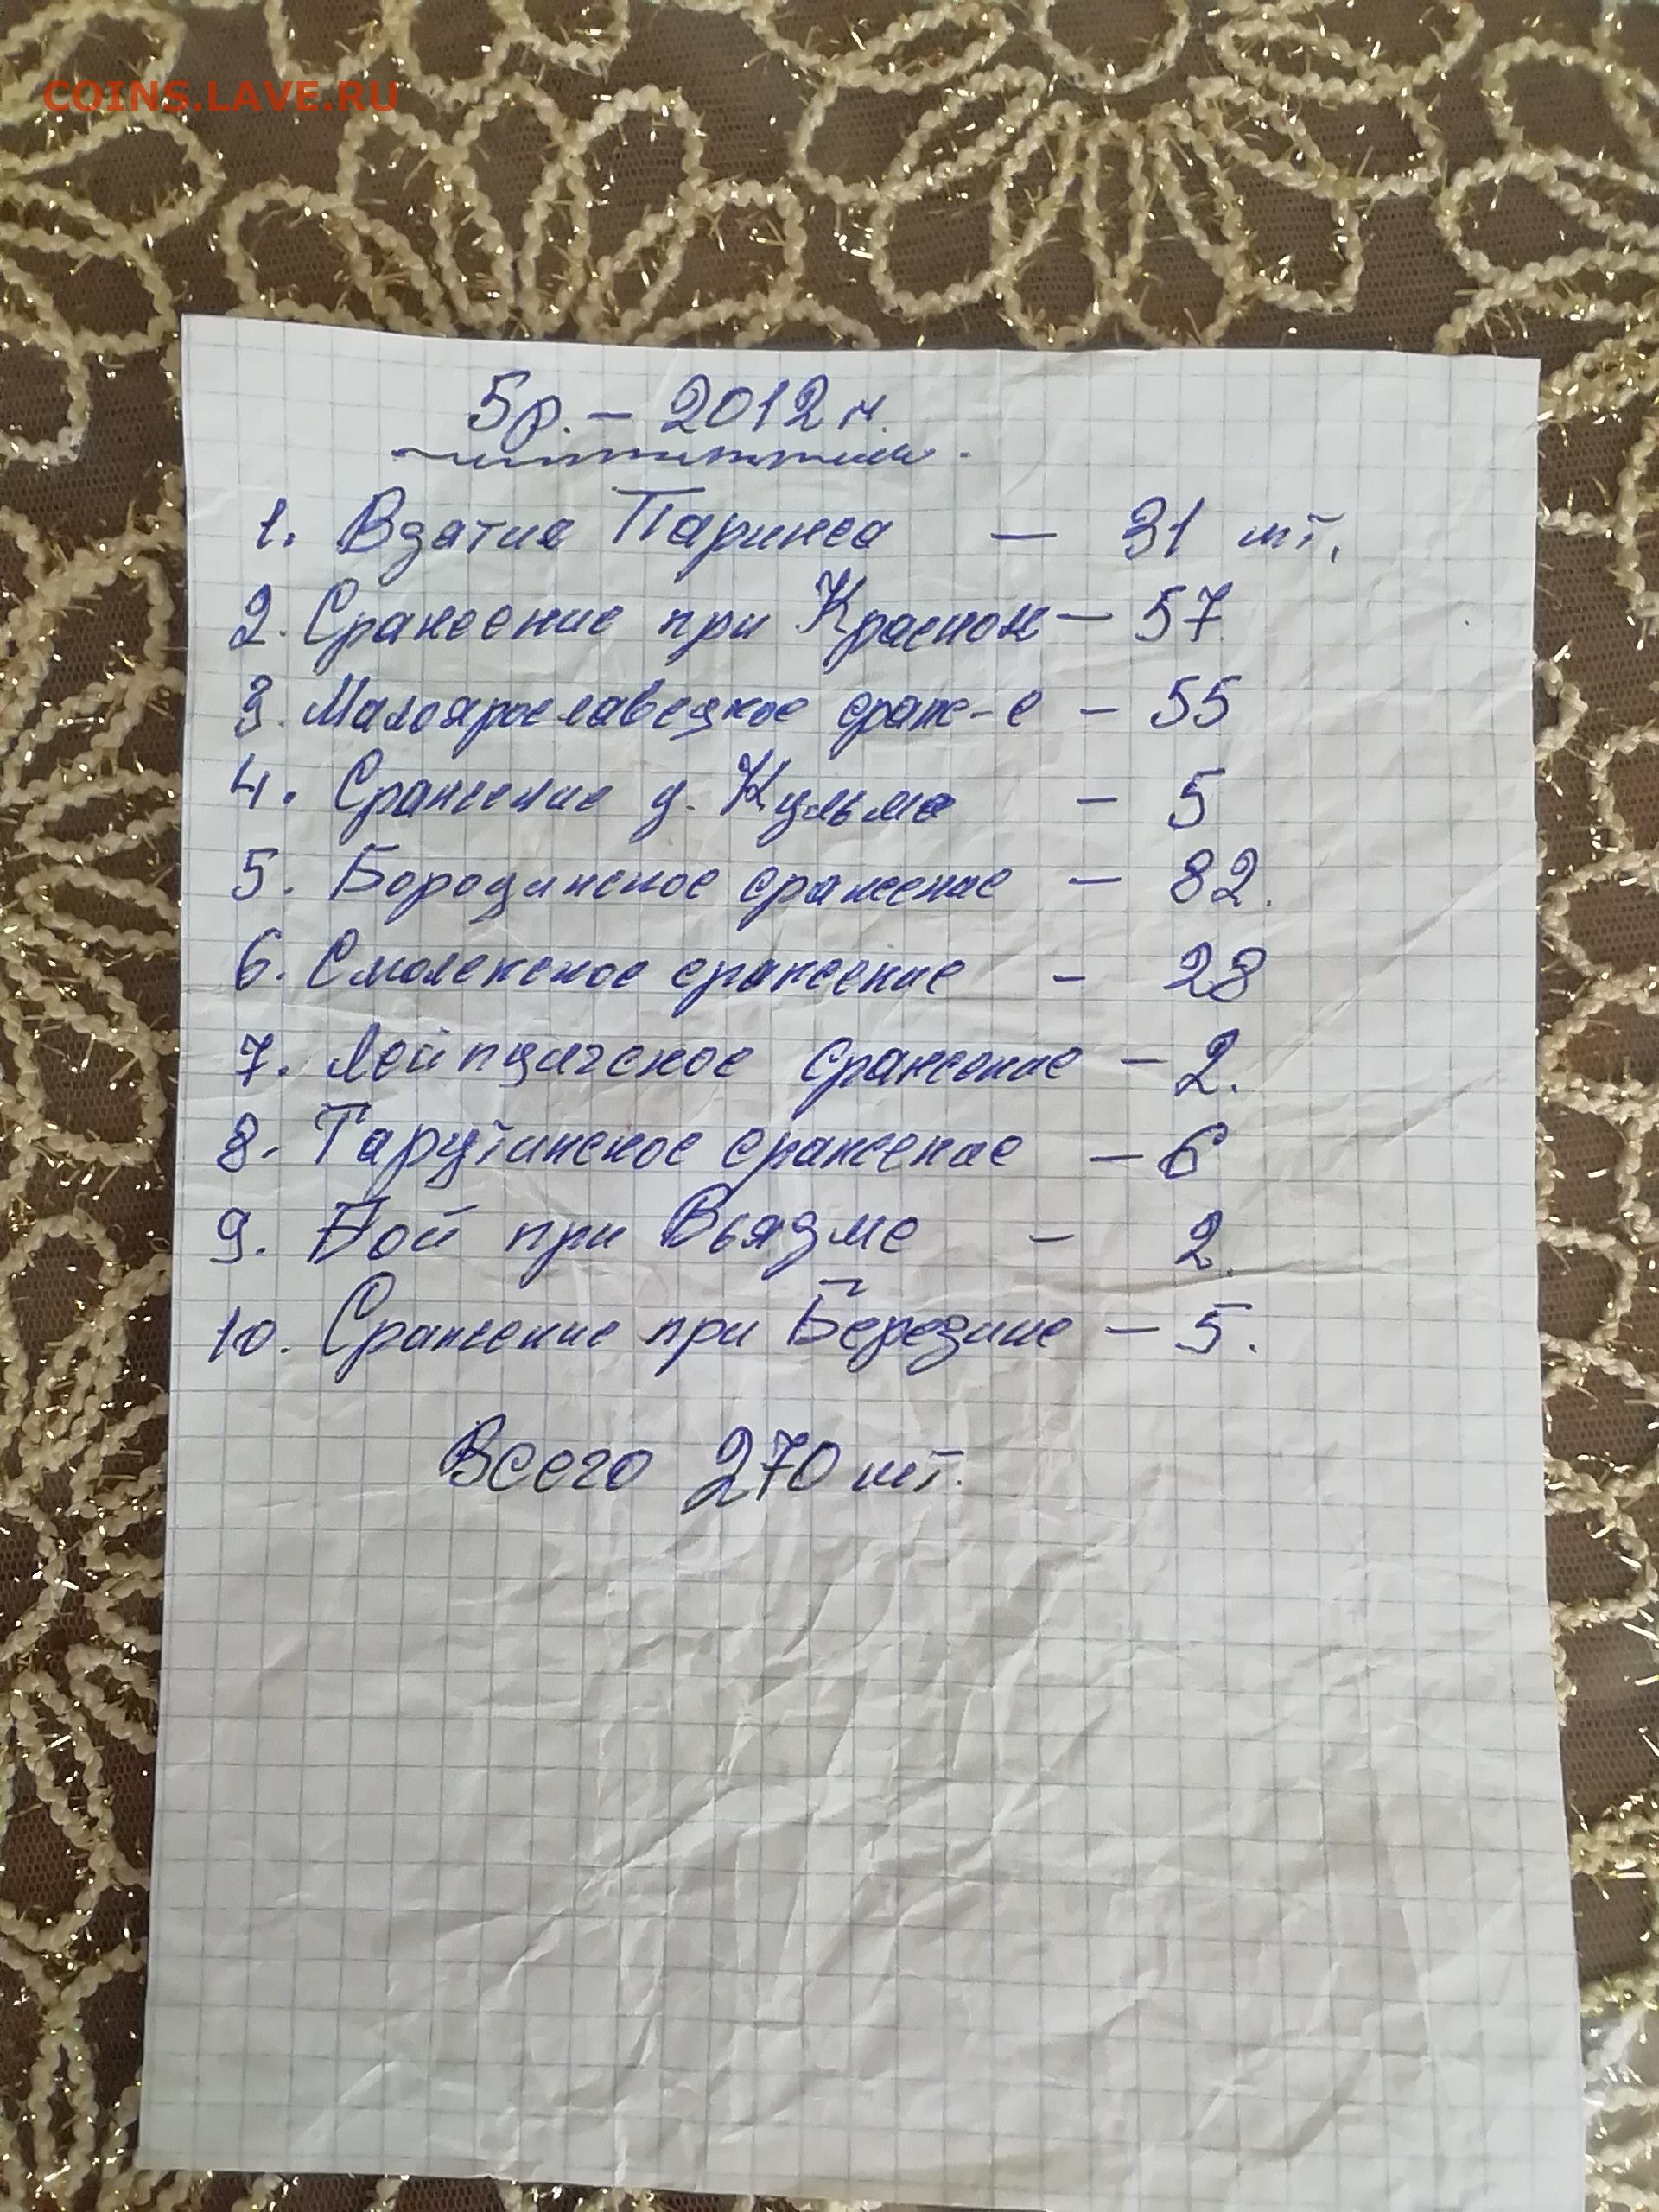 COINS.LAVE.RU
5р. – 2012 г.
1. Взятие Парижа – 31 шт.
2. Сражение при Красном – 57
3. Малоярославецкое сраж-е – 55
4. Сражение д. Кульме – 5
5. Бородинское сражение – 82.
6. Смоленское сражение – 28
7. Лейпцигское сражение – 2.
8. Тарутинское сражение – 6
9. Бой при Вьязме – 2.
10. Сражение при Березине – 5.
Всего 270 шт.